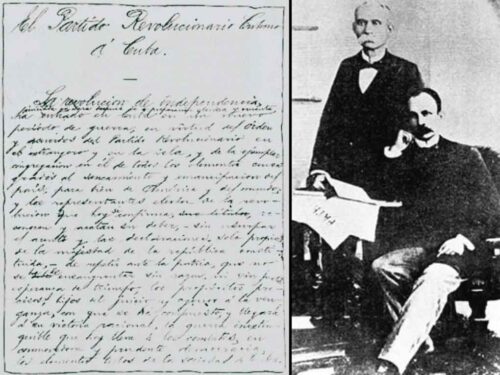 El Partido Revolucionario Cubano
á Cuba.
La revolucion de independencia,
iniciada en Yara despues de preparacion gloriosa y cruenta,
ha entrado en Cuba en un nuevo
periodo de guerra, en virtud del orden
y acuerdos del Partido Revolucionario en
el extranjero y en la isla, y de la ejemplar
congregacion en él de todos los elementos consa-
grados al saneamiento y emancipacion del
país, para bien de América y del mundo:
y los representantes electos de la revo-
lucion que hoy confirma, sus deber, reco-
nocen y acatan su deber, - sin usurpar
el acento y las declaraciones solo propias
de la majestad de la república consti-
tuida, - de repetir ante la patria, que no
se ha de ensangrentar sin razon, ni sin justa
esperanza de triunfo, los propósitos pre-
cisos, hijos del juicio y ajenos á la ven-
ganza, con que se ha compuesto, y llegará
á su victoria racional, la guerra inextin-
guible que hoy lleva á los combates, en
conmovedora y prudente democracia,
los elementos todos de la sociedad de Cuba.